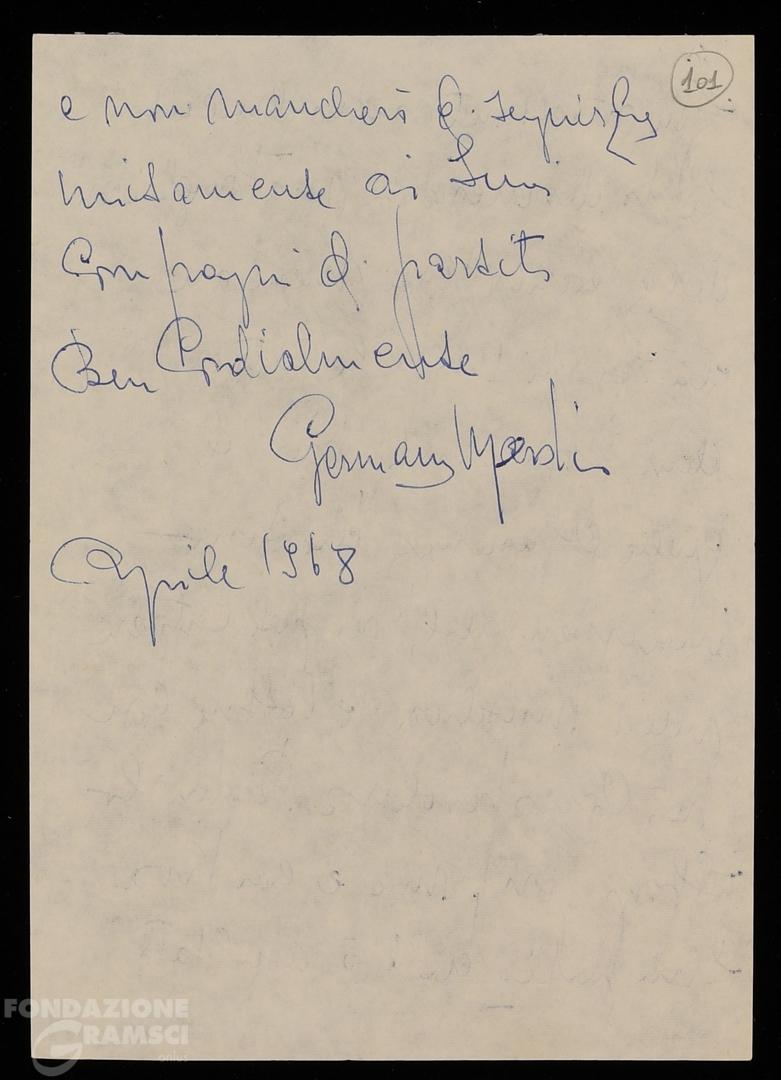 101
e non mancherò di seguirLa
unitamente ai Suoi
Compagni di partito
Ben Cordialmente
Germano
Aprile 1968
FONDAZIONE
GRAMSCI
onlus